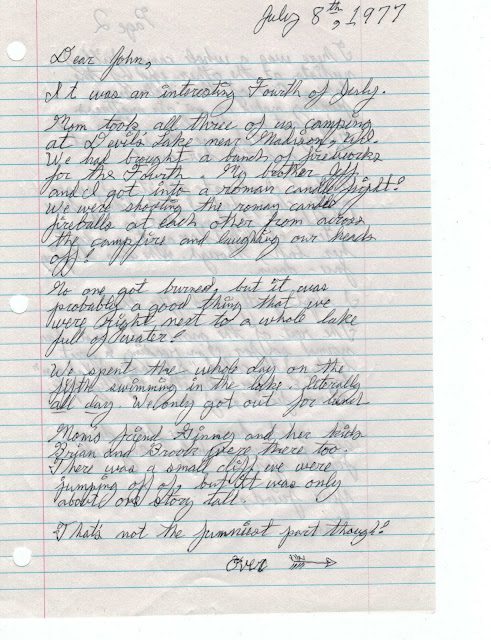 July 8th, 1977
Dear John,
It was an interesting Fourth of July.
Mom took all three of us camping
at Devil's Lake near Madison, Wi.
We had brought a bunch of fireworks
for the Fourth. My brother Jeff
and I got into a roman candle fight!
We were shooting the roman candle
fireballs at each other from across
the campfire and laughing our heads
off!
No one got burned, but it was
probably a good thing that we
were right next to a whole lake
full of water!
We spent the whole day on the
swimming in the lake. literally
all day. We only got out for lunch
Moms friend Ginney and her kids
Brian and Brook were there too.
There was a small cliff we were
jumping off of, but it was only
about one story tall.
That's not the funniest part though!
over